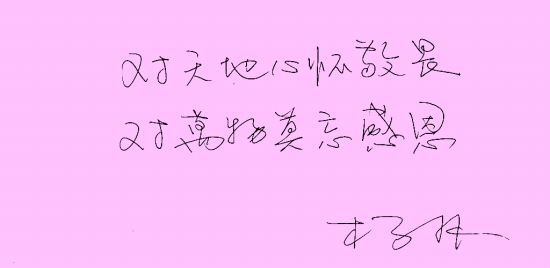 对天地心怀敬畏
对萬物莫忘感恩